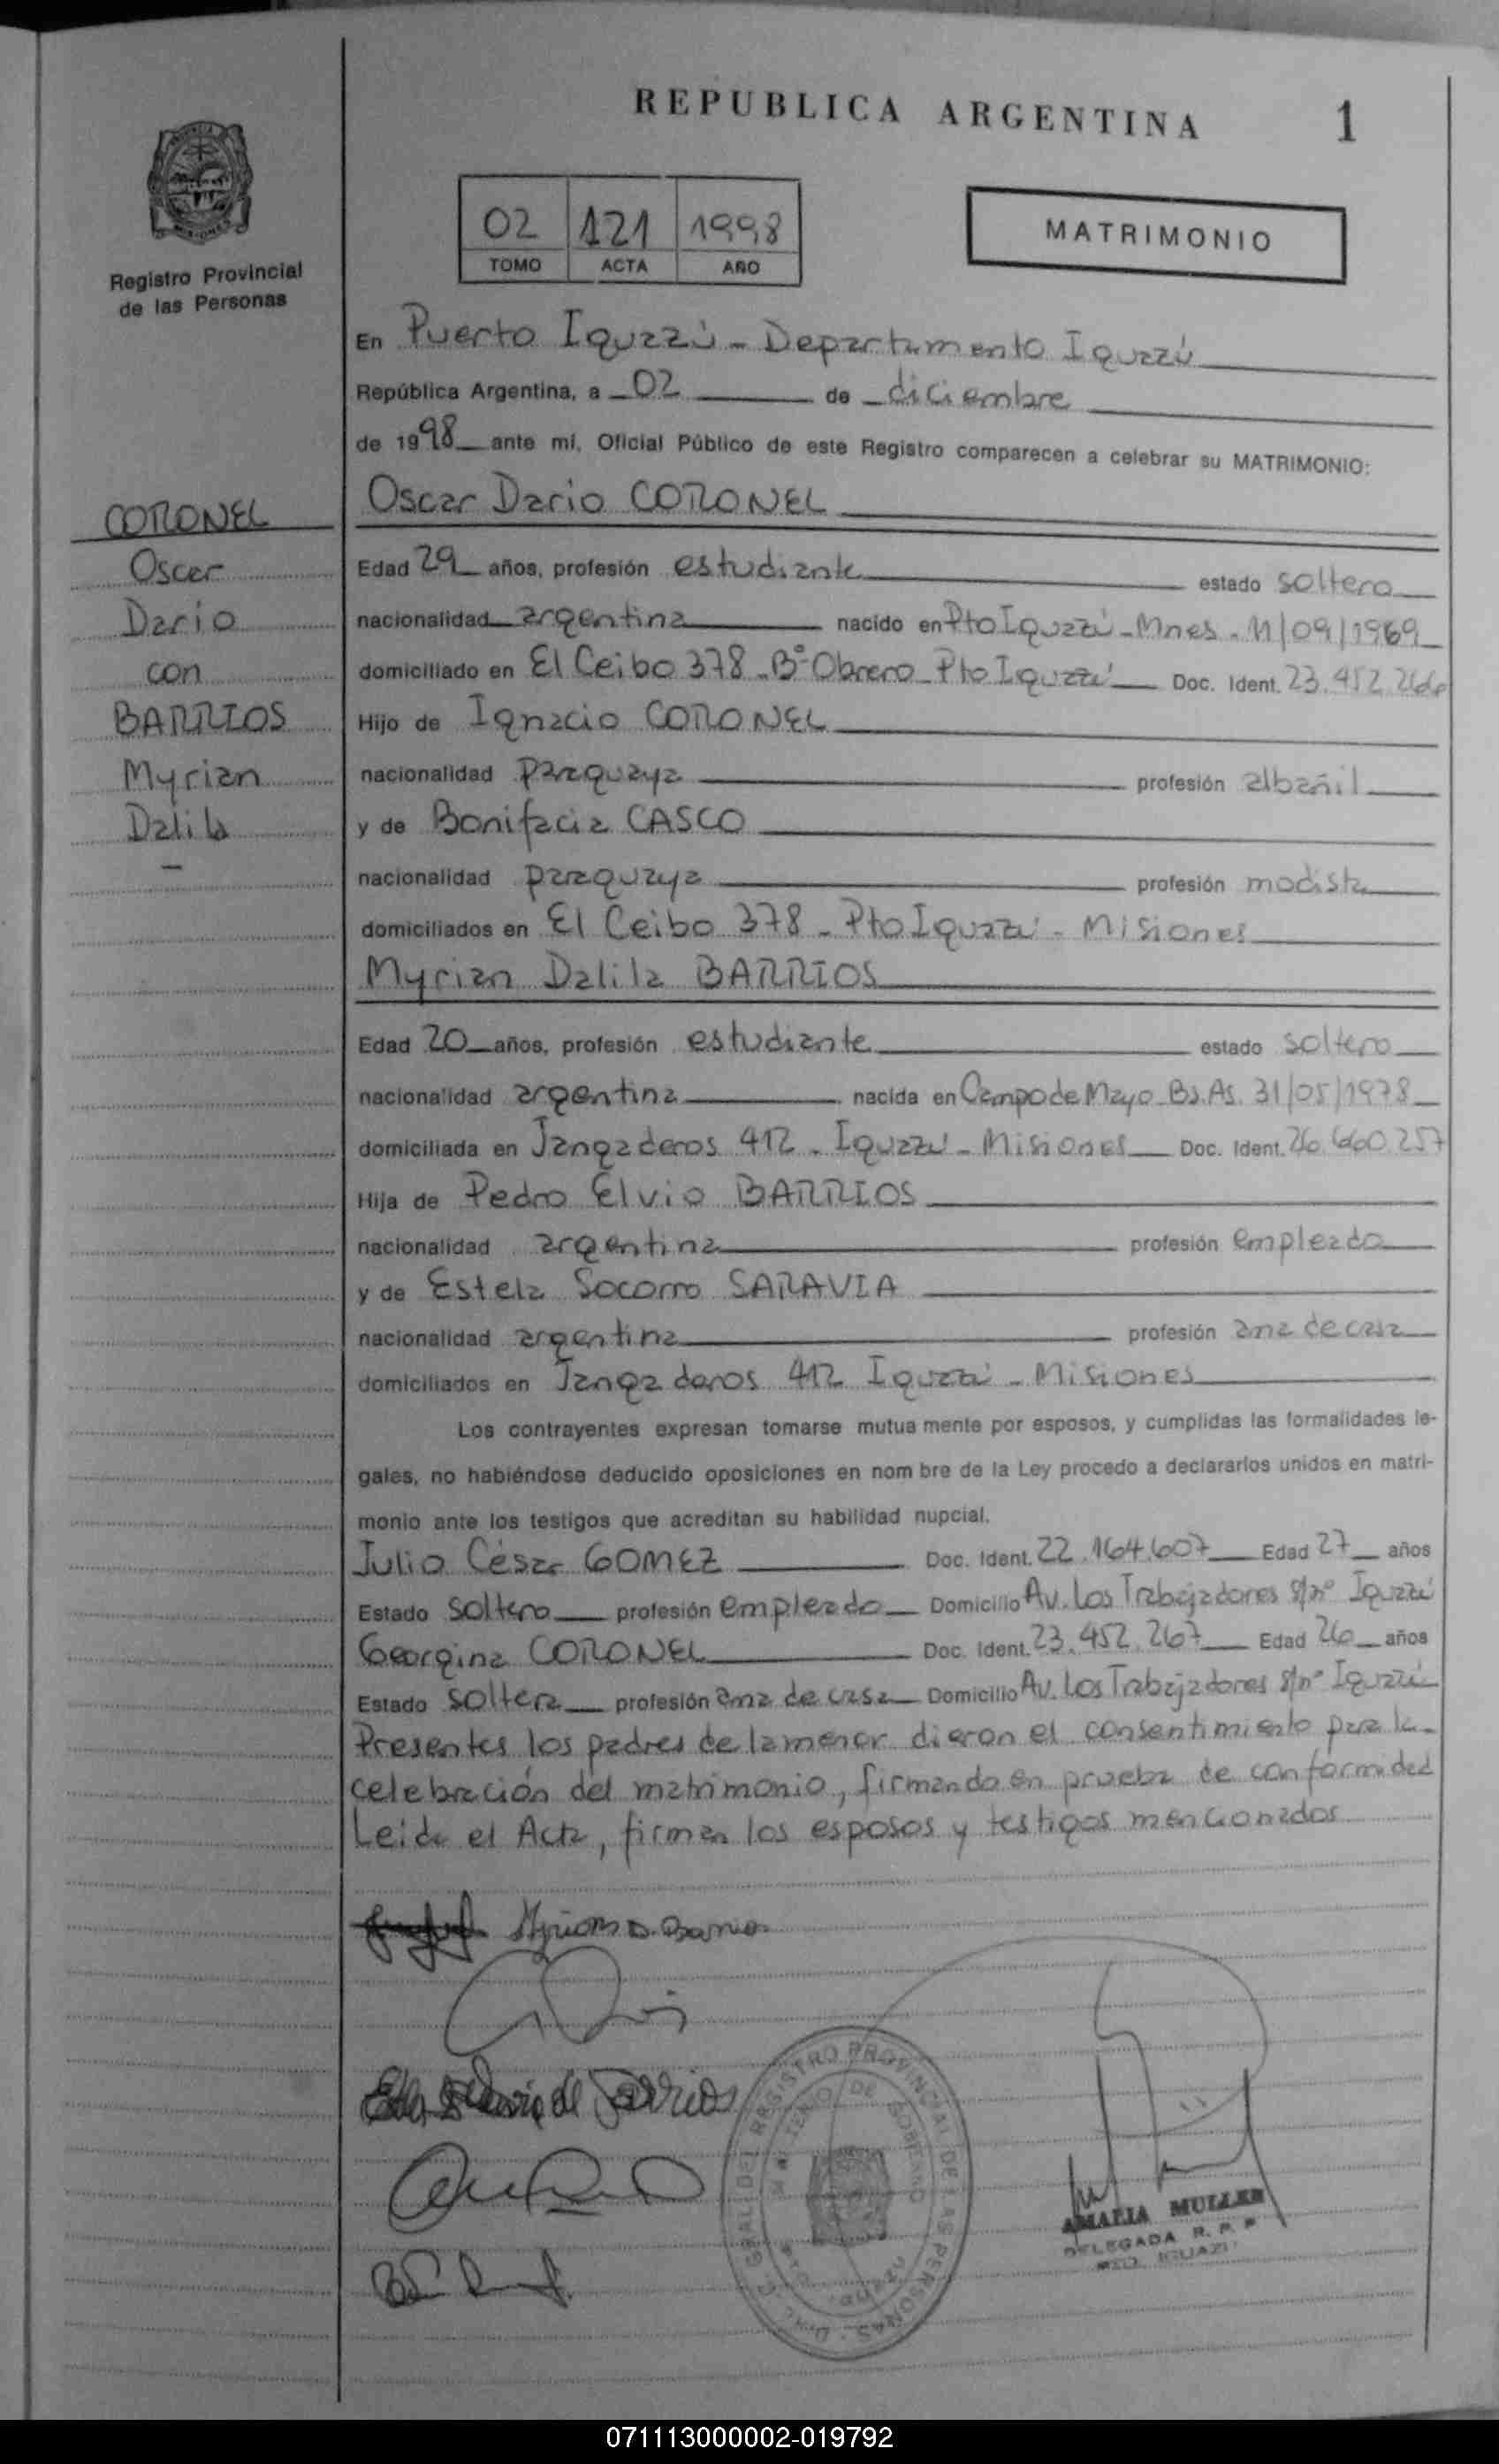 REPUBLICA ARGENTINA 1
Registro Provincial
de las Personas
02 121 1998
TOMO ACTA AÑO
MATRIMONIO
CORONEL
Oscar
Dario
con
BARRIOS
Myrian
Dalila
En Puerto Iguazú - Departamento Iguazú
República Argentina, a 02 de diciembre
de 1998 ante mí, Oficial Público de este Registro comparecen a celebrar su MATRIMONIO:
Oscar Dario CORONEL
Edad 29 años, profesión estudiante estado soltero
nacionalidad argentina nacido en Pto Iguazú - Mnes - 11/09/1969
domiciliado en El Ceibo 378 - Bº Obrero - Pto Iguazú Doc. Ident. 23.452.266
Hijo de Ignacio CORONEL
nacionalidad paraguaya profesión albañil
y de Bonifacia CASCO
nacionalidad paraguaya profesión modista
domiciliados en El Ceibo 378 - Pto Iguazú - Misiones
Myrian Dalila BARRIOS
Edad 20 años, profesión estudiante estado soltero
nacionalidad argentina nacida en Campo de Mayo - Bs. As. 31/05/1978
domiciliada en Jangaderos 412 - Iguazú - Misiones Doc. Ident. 26.660.257
Hija de Pedro Elvio BARRIOS
nacionalidad argentina profesión empleado
y de Estela Socorro SARAVIA
nacionalidad argentina profesión ama de casa
domiciliados en Jangaderos 412 Iguazú - Misiones
Los contrayentes expresan tomarse mutua mente por esposos, y cumplidas las formalidades le-
gales, no habiéndose deducido oposiciones en nom bre de la Ley procedo a declararlos unidos en matri-
monio ante los testigos que acreditan su habilidad nupcial.
Julio César GOMEZ Doc. Ident. 22.164.607 Edad 27 años
Estado soltero profesión empleado Domicilio Av. Los Trabajadores s/nº Iguazú
Georgina CORONEL Doc. Ident. 23.452.267 Edad 26 años
Estado soltera profesión ama de casa Domicilio Av. Los Trabajadores s/nº Iguazú
Presentes los padres de la menor dieron el consentimiento para la
celebración del matrimonio, firmando en prueba de conformidad
Leída el Acta, firman los esposos y testigos mencionados
Myriam D. Barrios
de Barrios
GRAL. DEL REGISTRO PROVINCIAL DE LAS PERSONAS
DE GOBIERNO
AMALIA MULLER
DELEGADA R. P. P.
IGUAZU
071113000002-019792